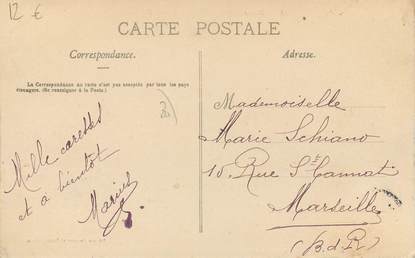 12 €
CARTE POSTALE
Correspondance.
Adresse.
La Correspondance au recto n'est pas acceptée par tous les pays
étrangers. (Se renseigner à la Poste.)
Mille caresses
et a bientôt
Marius
Mademoiselle
Marie Schiano
10, Rue St Cannat
Marseille
(B.d.R)